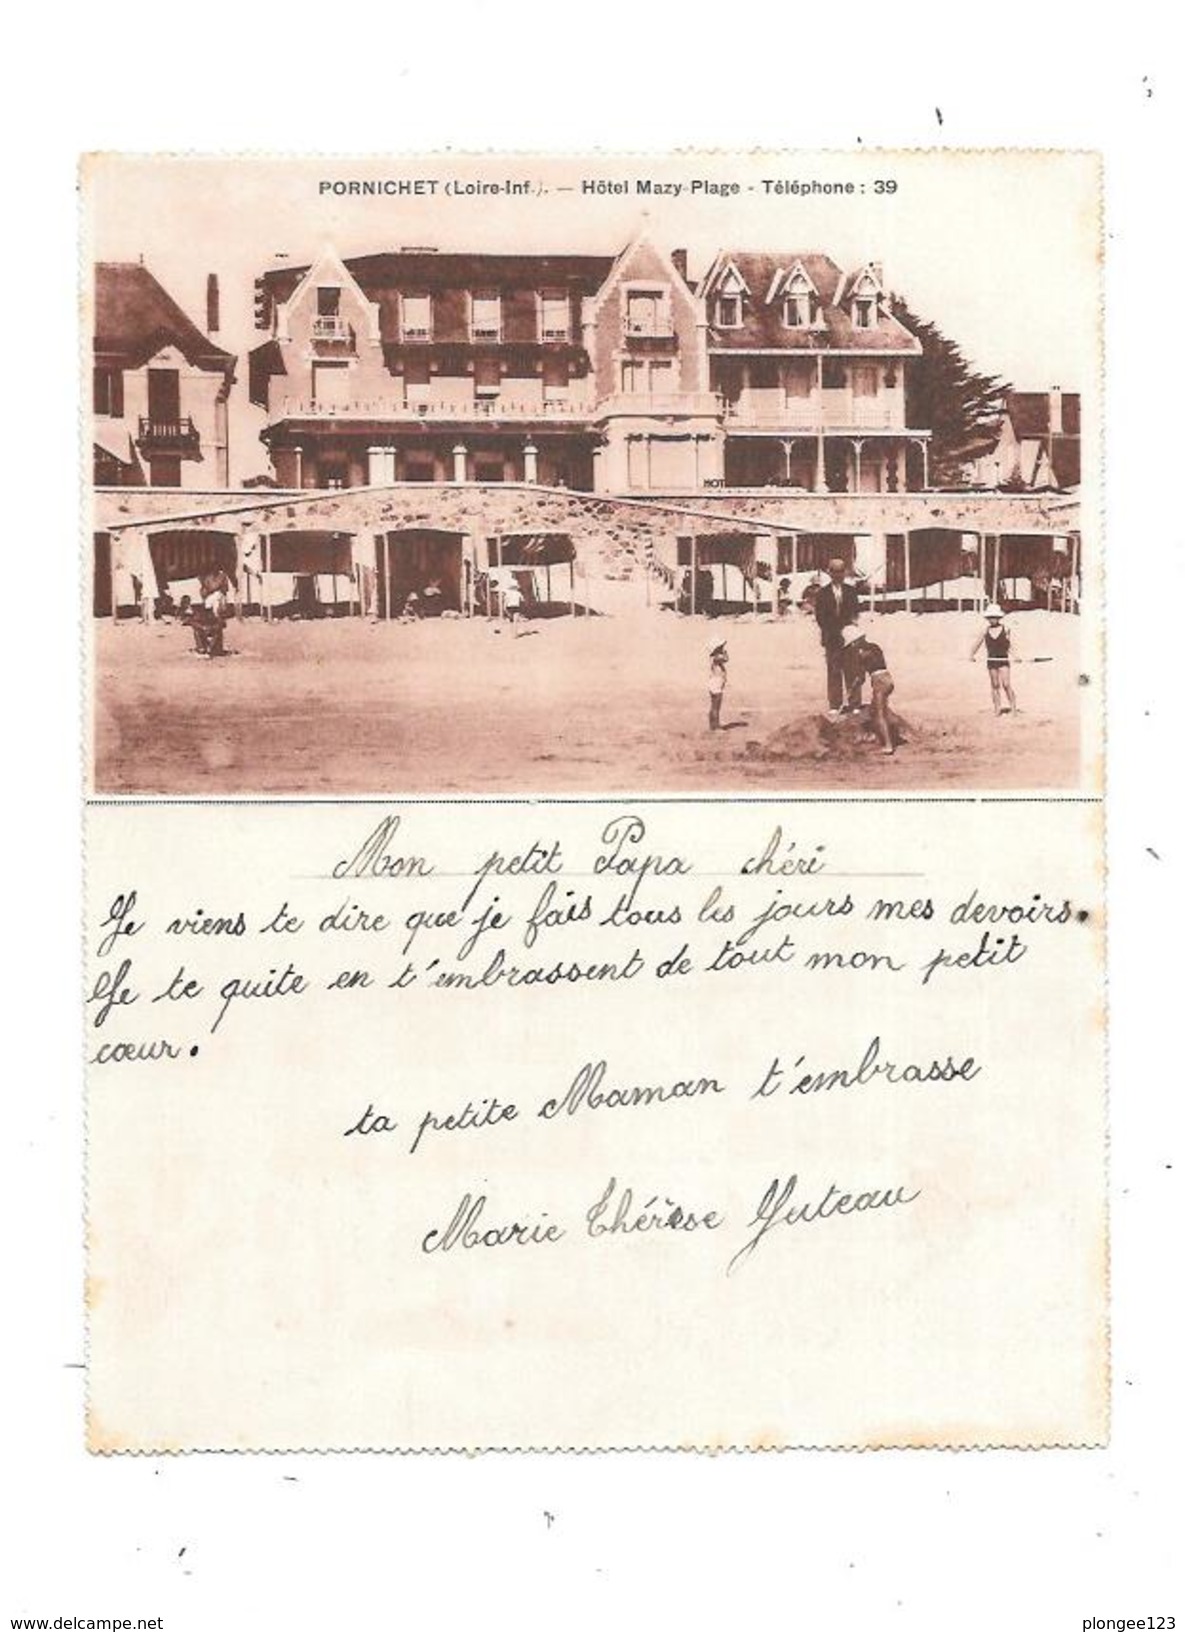 PORNICHET (Loire-Inf.). — Hôtel Mazy-Plage - Téléphone : 39
HOT
Mon petit Papa chéri
Je viens te dire que je fais tous les jours mes devoirs.
Je te quite en t'embrassent de tout mon petit
cœur.
ta petite Maman t'embrasse
Marie Thérèse Juteau
www.delcampe.net
plongee123